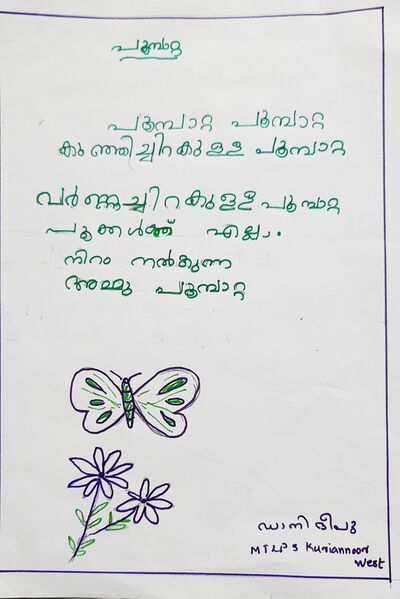 പൂമ്പാറ്റ
പൂമ്പാറ്റ പൂമ്പാറ്റ
കുഞ്ഞിച്ചിറകുള്ള പൂമ്പാറ്റ
വർണ്ണച്ചിറകുള്ള പൂമ്പാറ്റ
പൂക്കൾക്ക് എല്ലാം.
നിറം നൽകുന്ന
അമ്മു പൂമ്പാറ്റ
ഡാനി ദീപു
MTLPS Kuriannoor
West